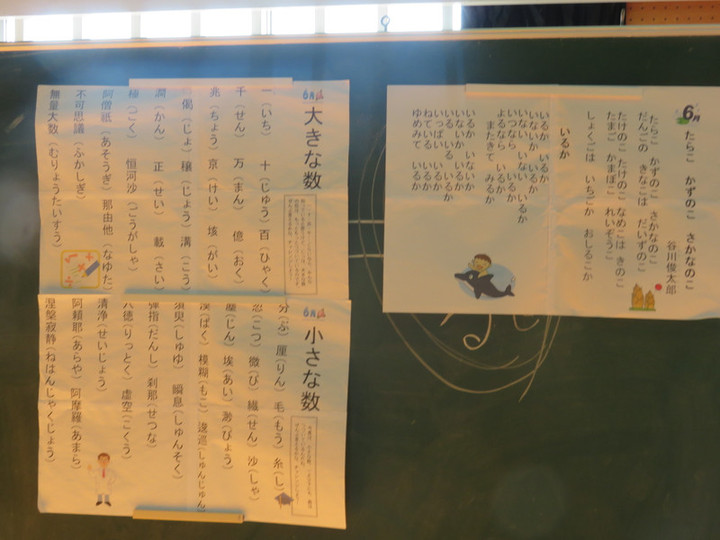 6月
たらこ かずのこ さかなのこ
谷川俊太郎
たらこ かずのこ さかなのこ
だんごの きなこは だいずのこ
たけのこ たけのこ なめこは きのこ
たまご かまぼこ れいぞうこ
しょくごは いちごか おしるこか
いるか
いるか いるか
いないか いるか
いない いない いるか
いつなら いるか
よるなら いるか
またきて みるか
いるか いないか
いないか いるか
いる いる いるか
いっぱい いるか
ねている いるか
ゆめみて いるか
6月
大きな数
一(いち) 十(じゅう) 百(ひゃく)
千(せん) 万(まん) 億(おく)
兆(ちょう) 京(けい) 垓(がい)
(じょ) 穣(じょう) 溝(こう)
澗(かん) 正(せい) 載(さい)
極(ごく) 恒河沙(ごうがしゃ)
阿僧祇(あそうぎ) 那由他(なゆた)
不可思議(ふかしぎ)
無量大数(むりょうたいすう)
6月
小さな数
分(ぶ) 厘(りん) 毛(もう) 糸(し)
忽(こつ) 微(び) 繊(せん) 沙(しゃ)
塵(じん) 埃(あい) 渺(びょう)
漠(ばく) 模糊(もこ) 逡巡(しゅんじゅん)
須臾(しゅゆ) 瞬息(しゅんそく)
弾指(だんし) 刹那(せつな)
六徳(りっとく) 虚空(こくう)
清浄(せいじょう)
阿頼耶(あらや) 阿摩羅(あまら)
涅槃寂静(ねはんじゃくじょう)